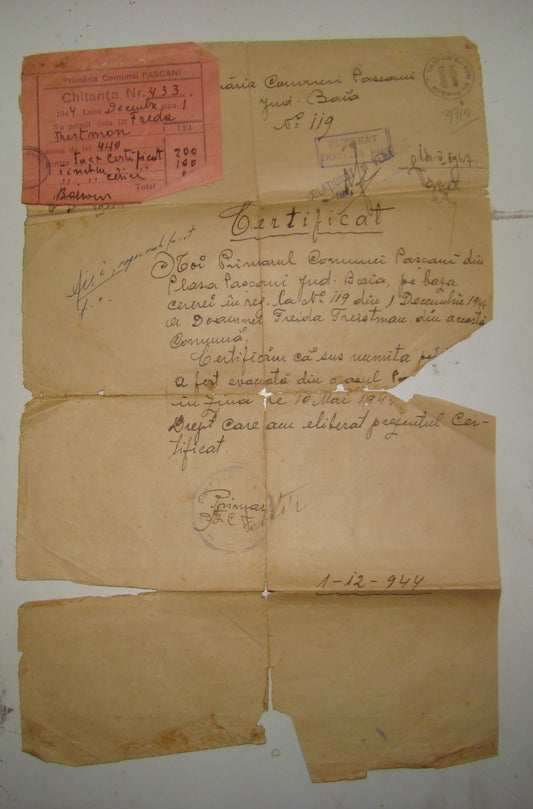 Primăria Comunei PASCANI
Chitanța Nr. 433
1944 Luna Decembre ziua 1
Nu primit dela Dl. Freda
Treistman
suma de lei 440
LEI
pentru taxa Certificat 200
" timbru 160
" cererii
Total
măria Comunei Pascani
Jud. Baia
No 119
Certificat
Noi Primarul Comunei Pascani din
Plasa Pascani Jud. Baia, pe baza
cererei în reg. la No 119 din 1 Decembrie 1944
a Doamnei Freida Treistman din această
Comună.
Certificăm că sus numita
a fost evacuată din orasul
în ziua de 10 Mai 194
Drept care am eliberat prezentul Cer-
tificat.
Primar
1-12-944